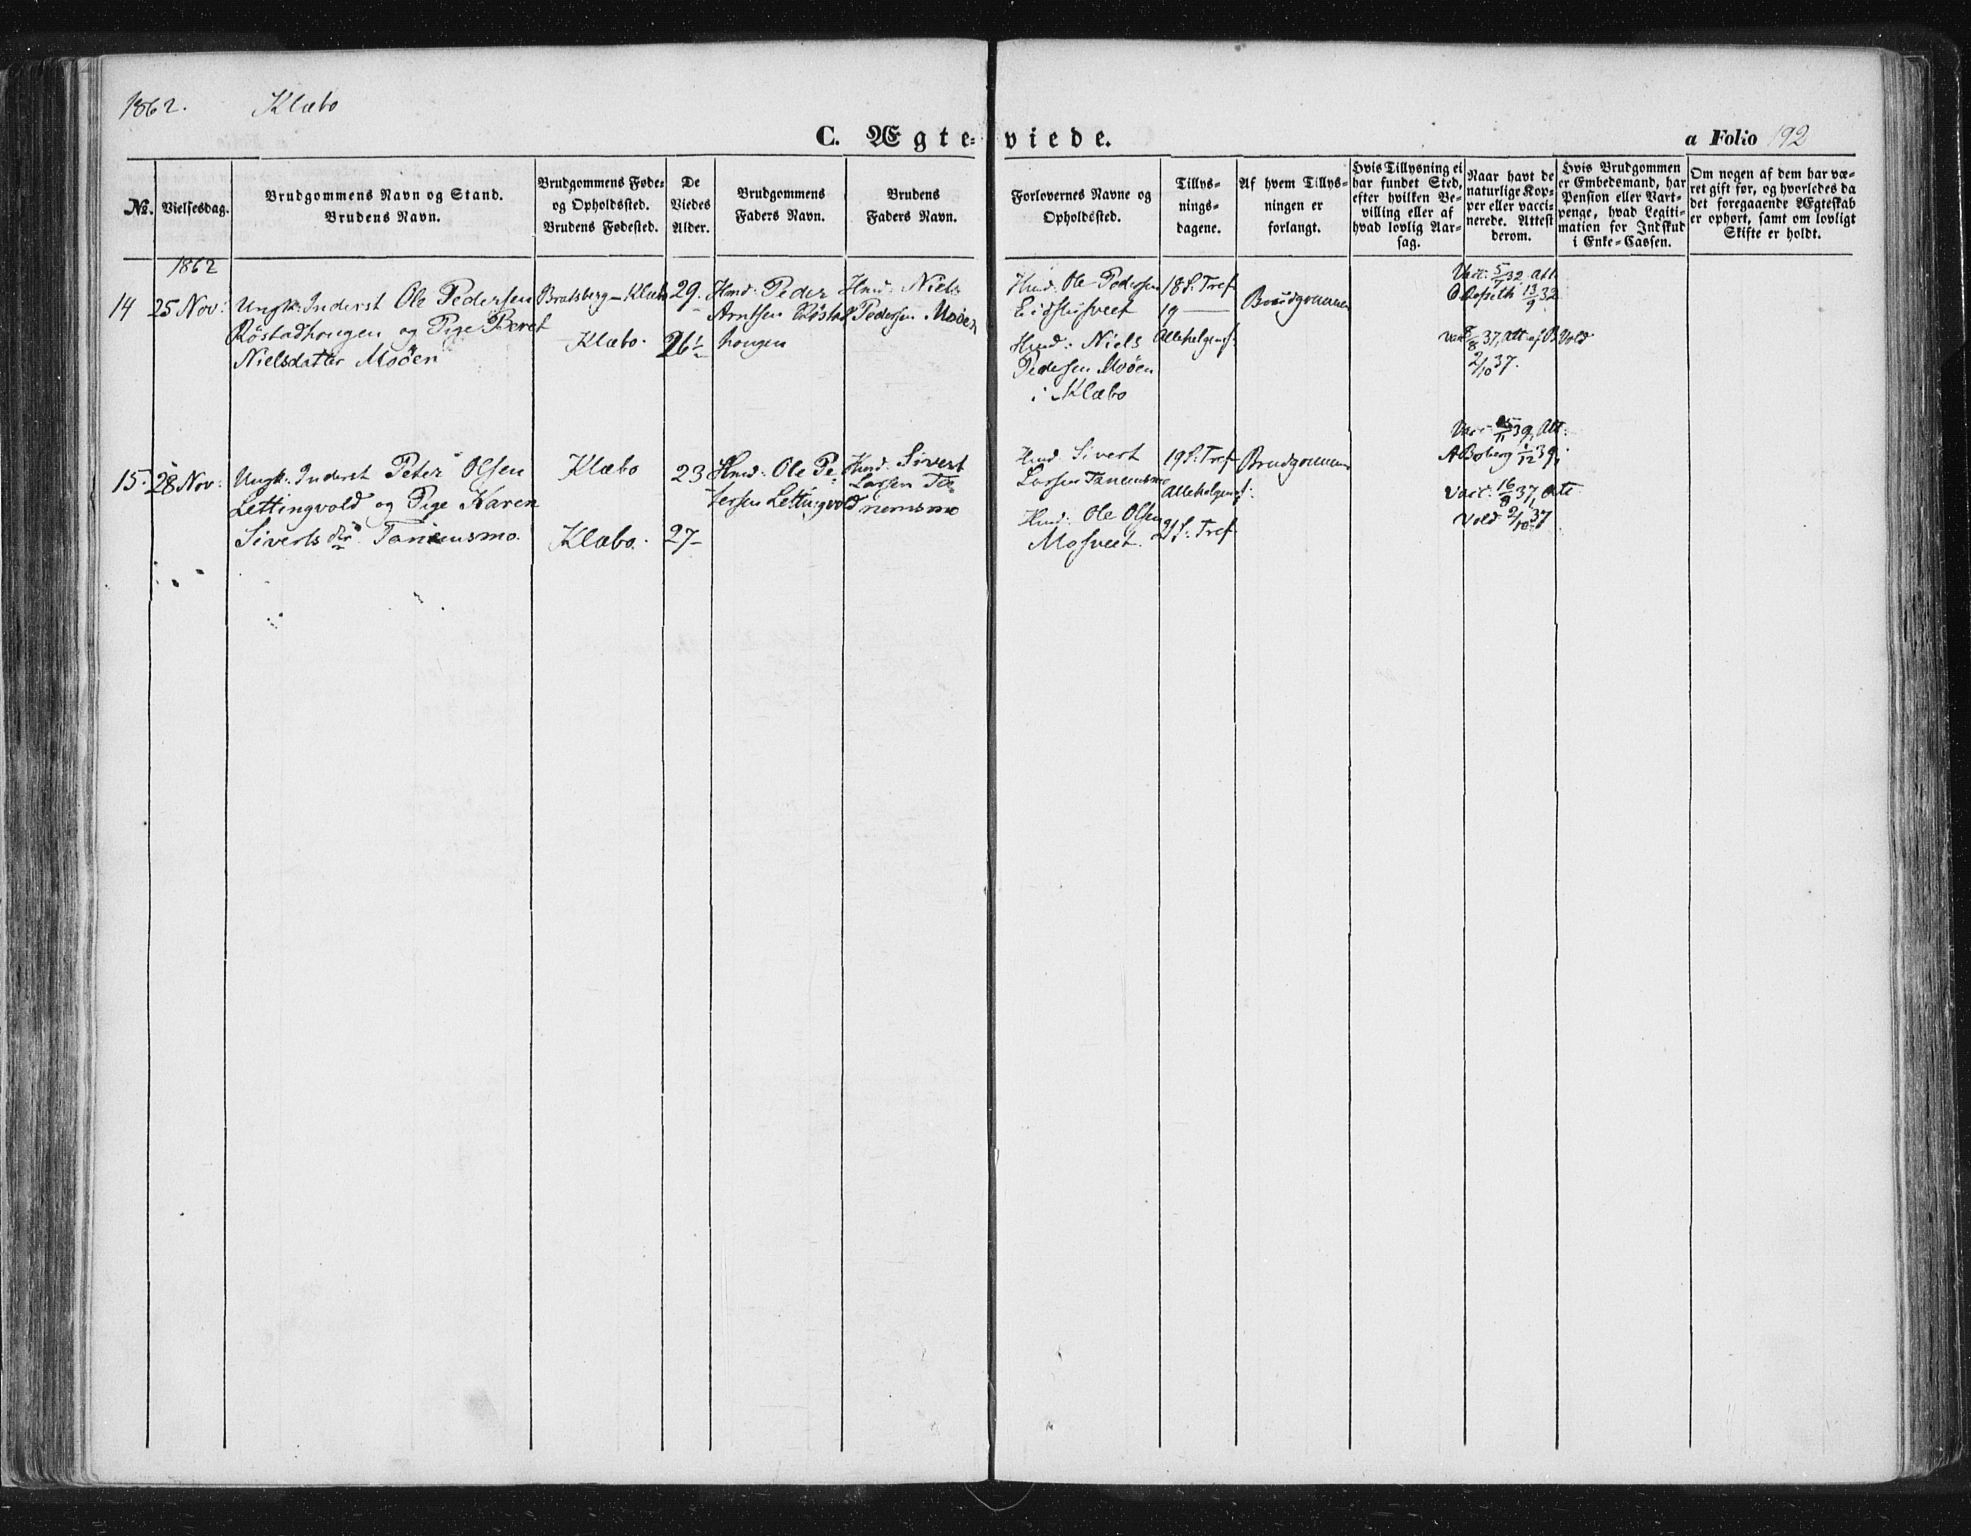 1862. Klæbo
C. Ægte-viede.
a Folio 192
No.
Vielsesdag.
Brudgommens Navn og Stand.
Brudens Navn.
Brudgommens Føde-
og Opholdssted.
Brudens Fødested.
De
Viedes
Alder.
Brudgommens
Faders Navn.
Brudens
Faders Navn.
Forlovernes Navne og
Opholdssted.
Tillys-
nings-
dagene.
Af hvem Tillys-
ningen er
forlangt.
Hvis Tillysning ei
har fundet Sted,
efter hvilken Be-
villing eller af
hvad lovlig Aar-
sag.
Naar havt de
naturlige Kop-
per eller vacci-
nerede. Attest
derom.
Hvis Brudgommen
er Embedsmand, har
Pension eller Vart-
penge, hvad Legiti-
mation for Indskud
i Enke-Cassen.
Om nogen af dem har væ-
ret gift før, og hvorledes da
det foregaaende Ægteskab
er ophørt, samt om lovligt
Skifte er holdt.
1862
14
25 Nov:
Ungk: Inderst Ole Pedersen
Røstadhougen og Pige Beret
Nielsdatter Moøen
Bratsberg - Klæbo
Klæbo.
29.
26½
Hmd: Peder
Arntsen Røstad
hougen
Hmd: Niels
Pedersen Moøen
Hmd. Ole Pedersen
Hmd: Niels
Pedersen Moøen
i Klæbo
18 S. Tref
19 —
Allehelgensf:
Brudgommen
Vacc: 5/7 32. Att.
13/9 32
Vac 8/8 37, Att. af B. Vold
2/10 37.
15.
28 Nov:
Ungk: Inderst Peter Olsen
Lettingvold og Pige Karen
Siverts dtr Tanemsmo.
Klæbo
Klæbo.
23
27
Hmd: Ole Pe-
tersen Lettingvold
Hmd. Sivert
Larsen Ta-
nemsmo
Hmd. Sivert
Larsen Tanemsmo
Hmd: Ole Olsen
Mosveet.
19 S. Tref
Allehelgensf:
21 S. Tref
Brudgommen
Att:
A Boberg 1/12 39,
Vacc: 16/8 37, Atte
Vold 2/10 37